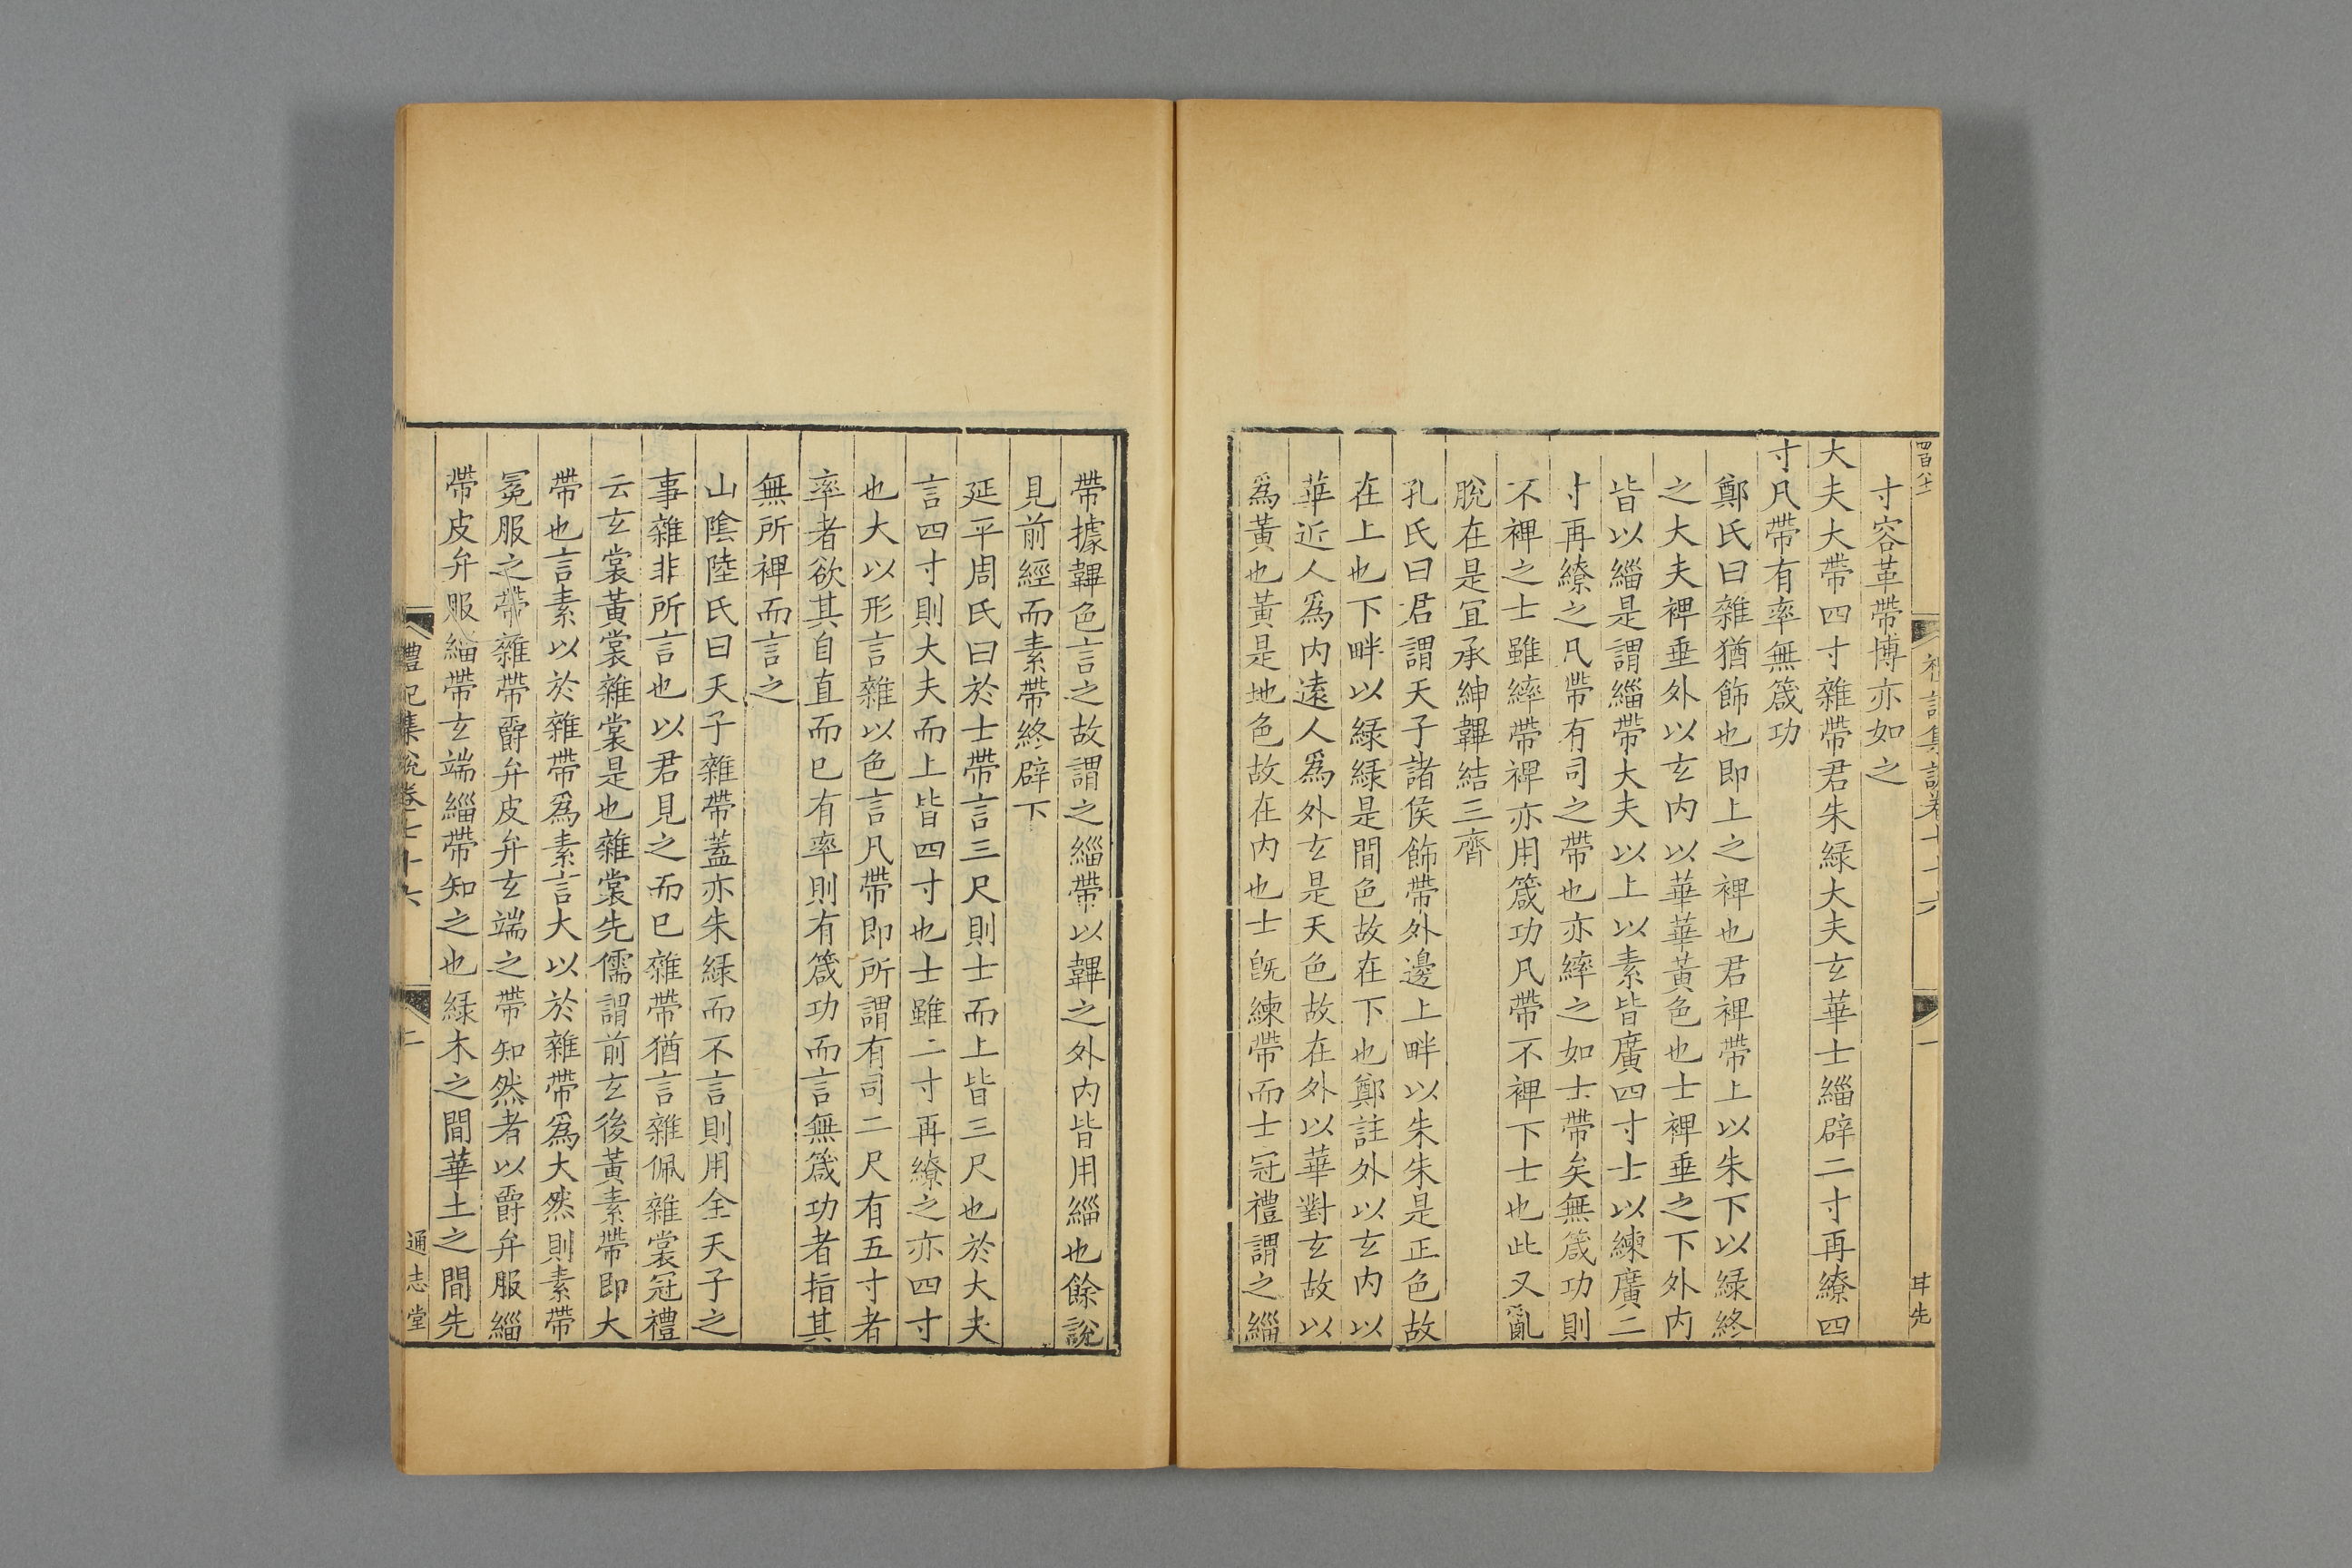 四百八十一
禮記集說卷七十六
一
寸容革帶博亦如之
大夫大帶四寸雜帶君朱綠大夫玄華士緇辟二寸再繚四
寸凡帶有率無箴功
鄭氏曰雜猶飾也即上之裨也君裨帶上以朱下以綠終
之大夫裨垂外以玄內以華華黃色也士裨垂之下外內
皆以緇是謂緇帶大夫以上以素皆廣四寸士以練廣二
寸再繚之凡帶有司之帶也亦繂之如士帶矣無箴功則
不裨之士雖繂帶裨亦用箴功凡帶不裨下士也此又亂
脫在是宜承紳韠結三齊
孔氏曰君謂天子諸侯飾帶外邊上畔以朱朱是正色故
在上也下畔以綠綠是間色故在下也鄭註外以玄內以
華近人為內遠人為外玄是天色故在外以華對玄故以
為黃也黃是地色故在內也士旣練帶而士冠禮謂之緇
帶據韠色言之故謂之緇帶以韠之外內皆用緇也餘說
見前經而素帶終辟下
延平周氏曰於士帶言三尺則士而上皆三尺也於大夫
言四寸則大夫而上皆四寸也士雖二寸再繚之亦四寸
也大以形言雜以色言凡帶即所謂有司二尺有五寸者
率者欲其自直而已有率則有箴功而言無箴功者指其
無所裨而言之
山陰陸氏曰天子雜帶蓋亦朱綠而不言則用全天子之
事雜非所言也以君見之而已雜帶猶言雜佩雜裳冠禮
云玄裳黃裳雜裳是也雜裳先儒謂前玄後黃素帶即大
帶也言素以於雜帶為素言大以於雜帶為大然則素帶
冕服之帶雜帶爵弁皮弁玄端之帶知然者以爵弁服緇
帶皮弁服緇帶玄端緇帶知之也綠木之間華土之間先
禮記集說卷七十六
二
通志堂